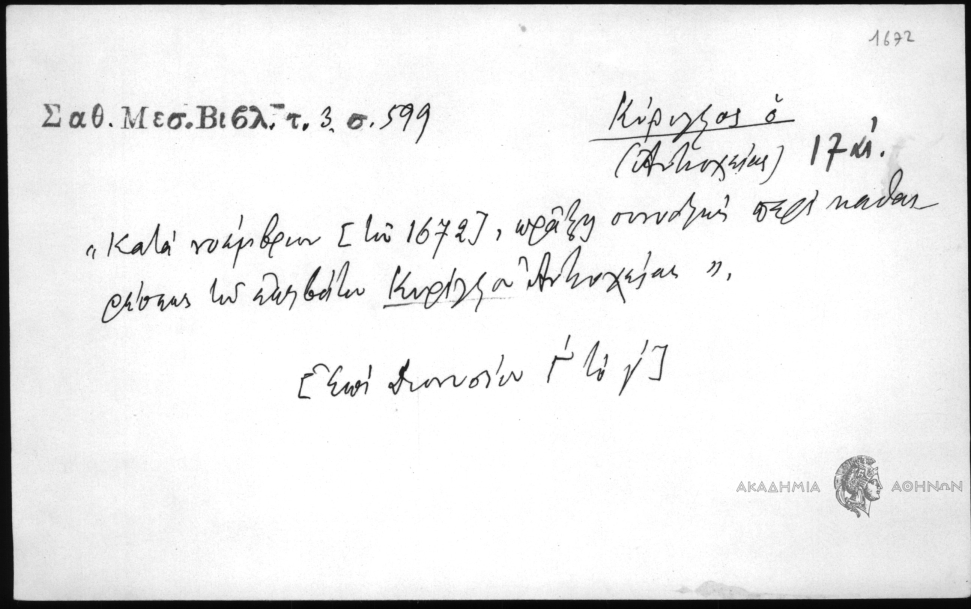 1672
Σαθ. Μεσ. Βιβλ. τ. 3 σ. 599
Κύριλλος ὁ
(Ἀντιοχείας) 17 αἰ.
„Κατὰ νοέμβριον [τοῦ 1672], πρᾶξις συνοδικὴ περὶ καθαι-
ρέσεως τοῦ ἐπιβάτου Κυρίλλου Ἀντιοχείας”.
[Ἐπὶ Διονυσίου τὸ γ']
ΑΚΑΔΗΜΙΑ ΑΘΗΝΩΝ